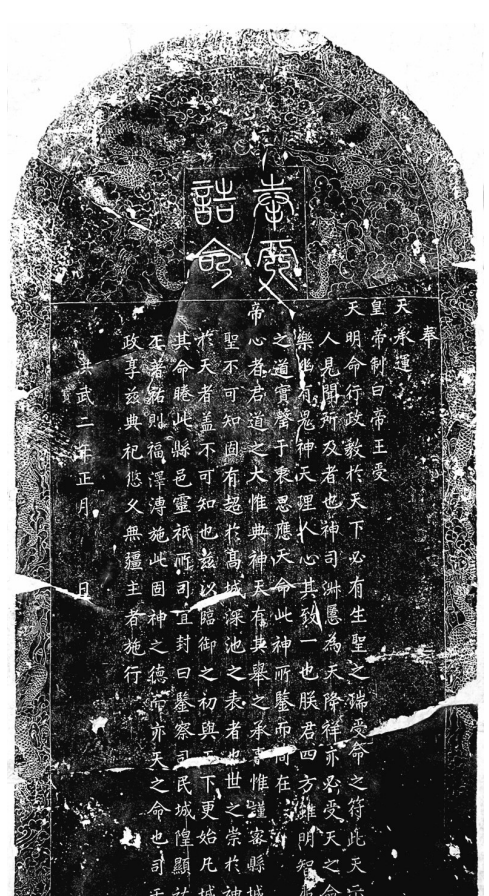 奉
誥命
奉
天承運
皇帝制曰帝王受
天明命行政教於天下必有生聖之瑞受命之符此天示
人見聞所及者也神司淑慝為天降祥亦必受天之命
樂幽有鬼神天理人心其致一也朕君四方雖明智
之道實罄于衷思應天命此神所鑒而尚在
帝心者君道之大惟典神天有其舉之承事惟謹縣城
聖不可知固有超於高城深池之表者也世之崇於神
於天者蓋不可知也茲以臨御之初與天下更始凡城
其命睠此縣邑靈祇所司宜封曰鑒察司民城隍顯祐
丕著祐則福澤溥施此固神之德而亦天之命也司
政享茲典祀悠久無疆主者施行
洪武二年正月 日